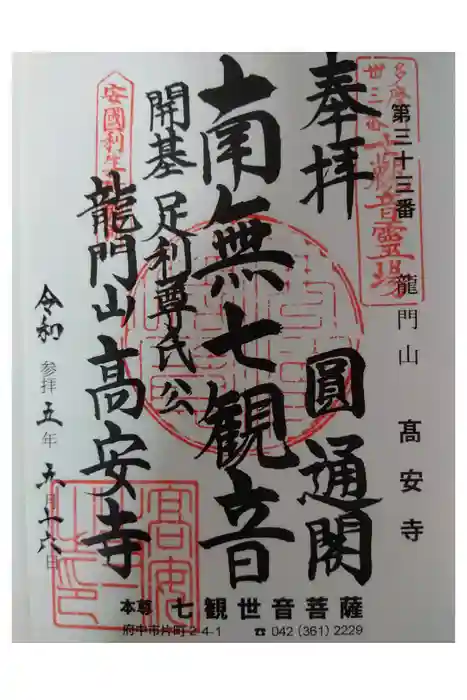 多摩
卅三番
観音霊場
第三十三番 龍門山 髙安寺
奉拝 圓通閣
南無七観音
開基 足利尊氏公
安國利生
龍門山 高安寺
令和 五年 六月十六日
参拝
本尊 七観世音菩薩
府中市片町2-4-1 ☎042(361)2229